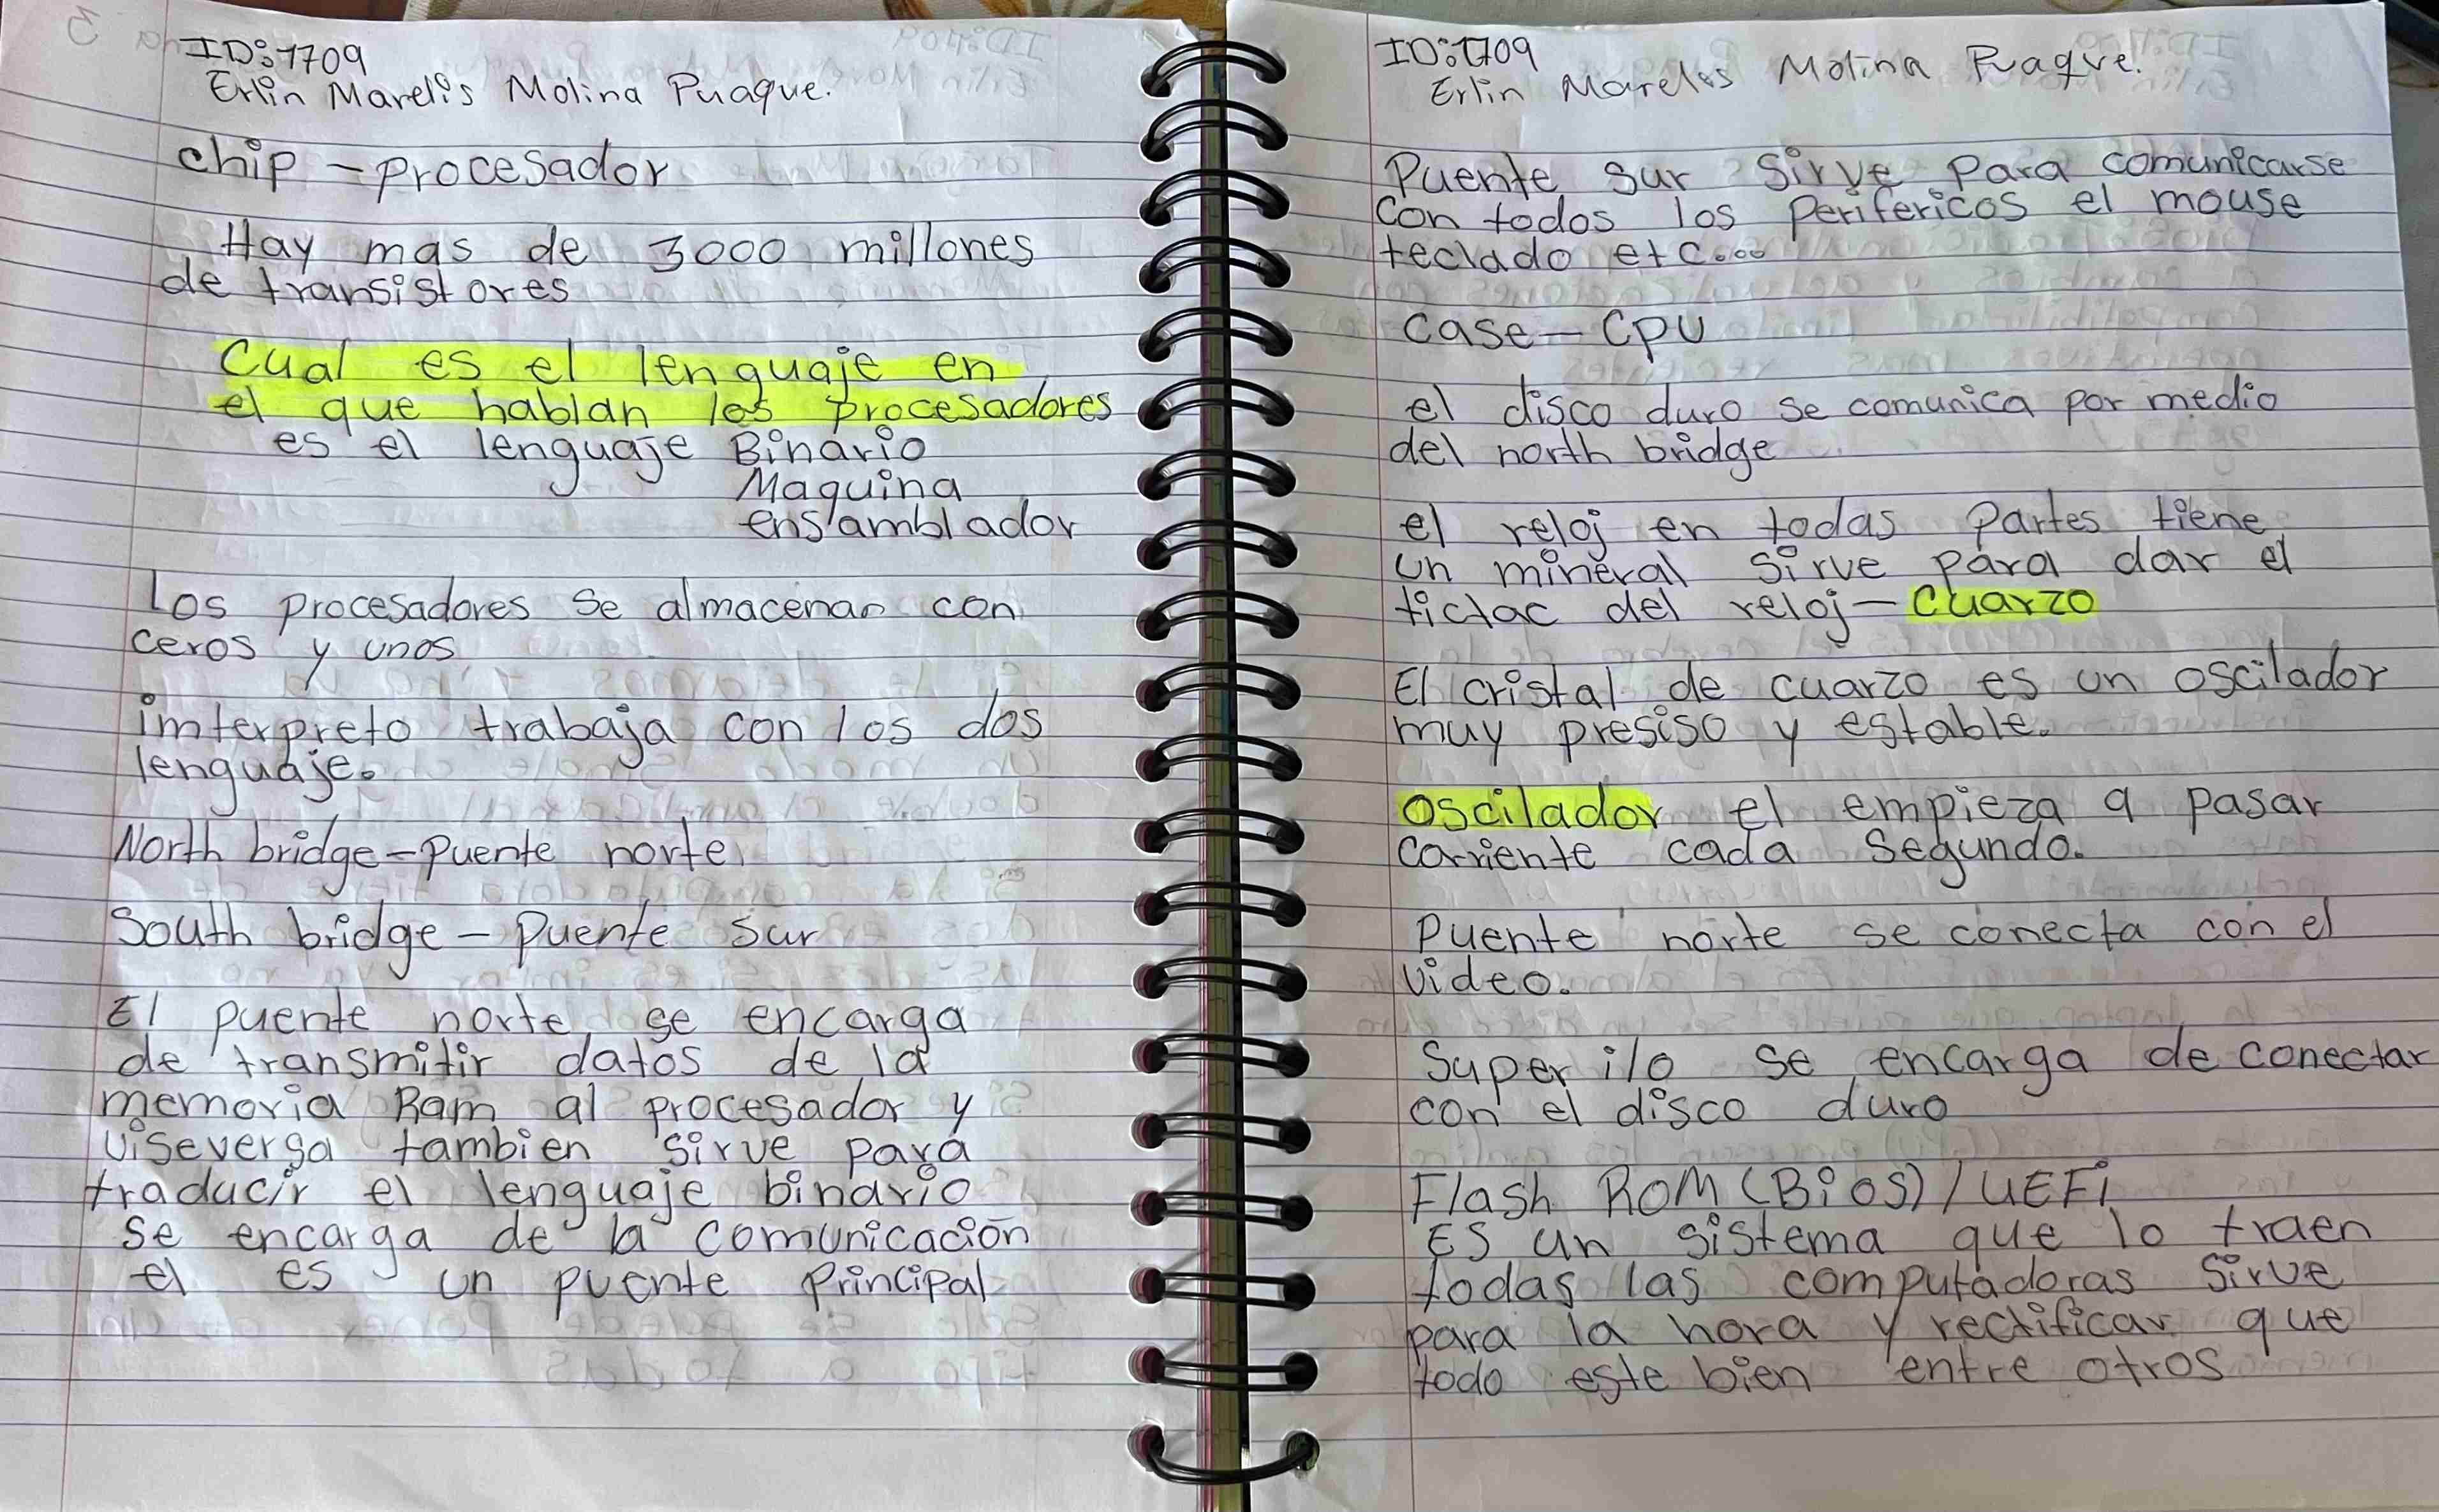 ID:1709
Erlin Marelis Molina Puaque.
chip - procesador
Hay mas de 3000 millones
de transistores
Cual es el lenguaje en
el que hablan los procesadores
es el lenguaje Binario
Maquina
ensamblador
Los procesadores se almacenan con
ceros y unos
imterpreto trabaja con los dos
lenguaje.
North bridge - puente norte
South bridge - puente sur
El puente norte se encarga
de transmitir datos de la
memoria Ram al procesador y
viseversa tambien sirve para
traducir el lenguaje binario
se encarga de la comunicación
el es un puente principal
ID:1709
Erlin Marelis Molina Puaque.
Puente sur sirve para comunicarse
con todos los perifericos el mouse
teclado etc....
case - CPU
el disco duro se comunica por medio
del north bridge
el reloj en todas partes tiene
un mineral sirve para dar el
tictac del reloj - cuarzo
El cristal de cuarzo es un oscilador
muy presiso y estable.
oscilador el empieza a pasar
corriente cada segundo.
Puente norte se conecta con el
video.
Super i/o se encarga de conectar
con el disco duro
Flash ROM (BiOS) / UEFi
ES un sistema que lo traen
todas las computadoras sirve
para la hora y rectificar que
todo este bien entre otros